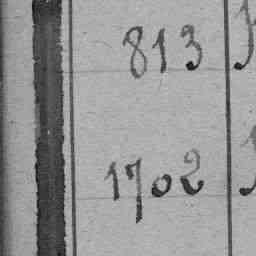 813
1702